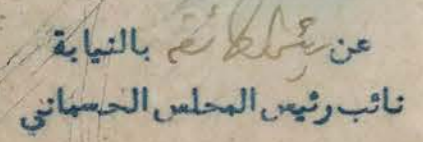 عن بالنيابة
نائب رئيس المجلس الحسباني